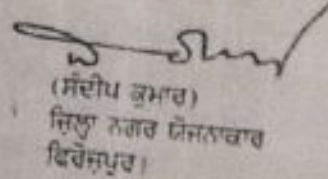 (ਸੰਦੀਪ ਕੁਮਾਰ)
ਜ਼ਿਲ੍ਹਾ ਨਗਰ ਯੋਜਨਾਕਾਰ
ਫਿਰੋਜ਼ਪੁਰ।